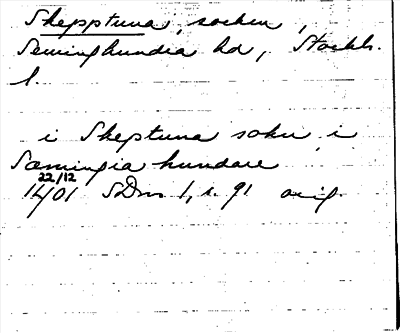 Skepptuna, socken,
Seminghundra hd, Stockh.
l.
i Skeptuna sokn i
Sæmingia hundare
22/12
1401 SDns 1, s. 91 orig.